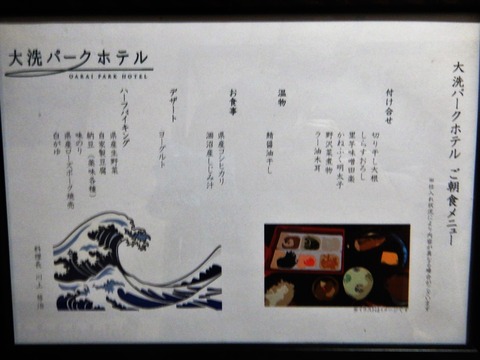 大洗パークホテル
OARAI PARK HOTEL
大洗パークホテル ご朝食メニュー
※仕入れ状況により内容が異なる場合がございます
付け合せ
切り干し大根
しらすおろし
里芋味噌田楽
かねふく明太子
野沢菜煮物
ラー油木耳
温物
鯖醤油干し
お食事
県産コシヒカリ
涸沼産しじみ汁
デザート
ヨーグルト
ハーフバイキング
県産生野菜
自家製豆腐
納豆（薬味各種）
味のり
県産ローズポーク焼売
白がゆ
料理長 川上
※イラストはイメージです